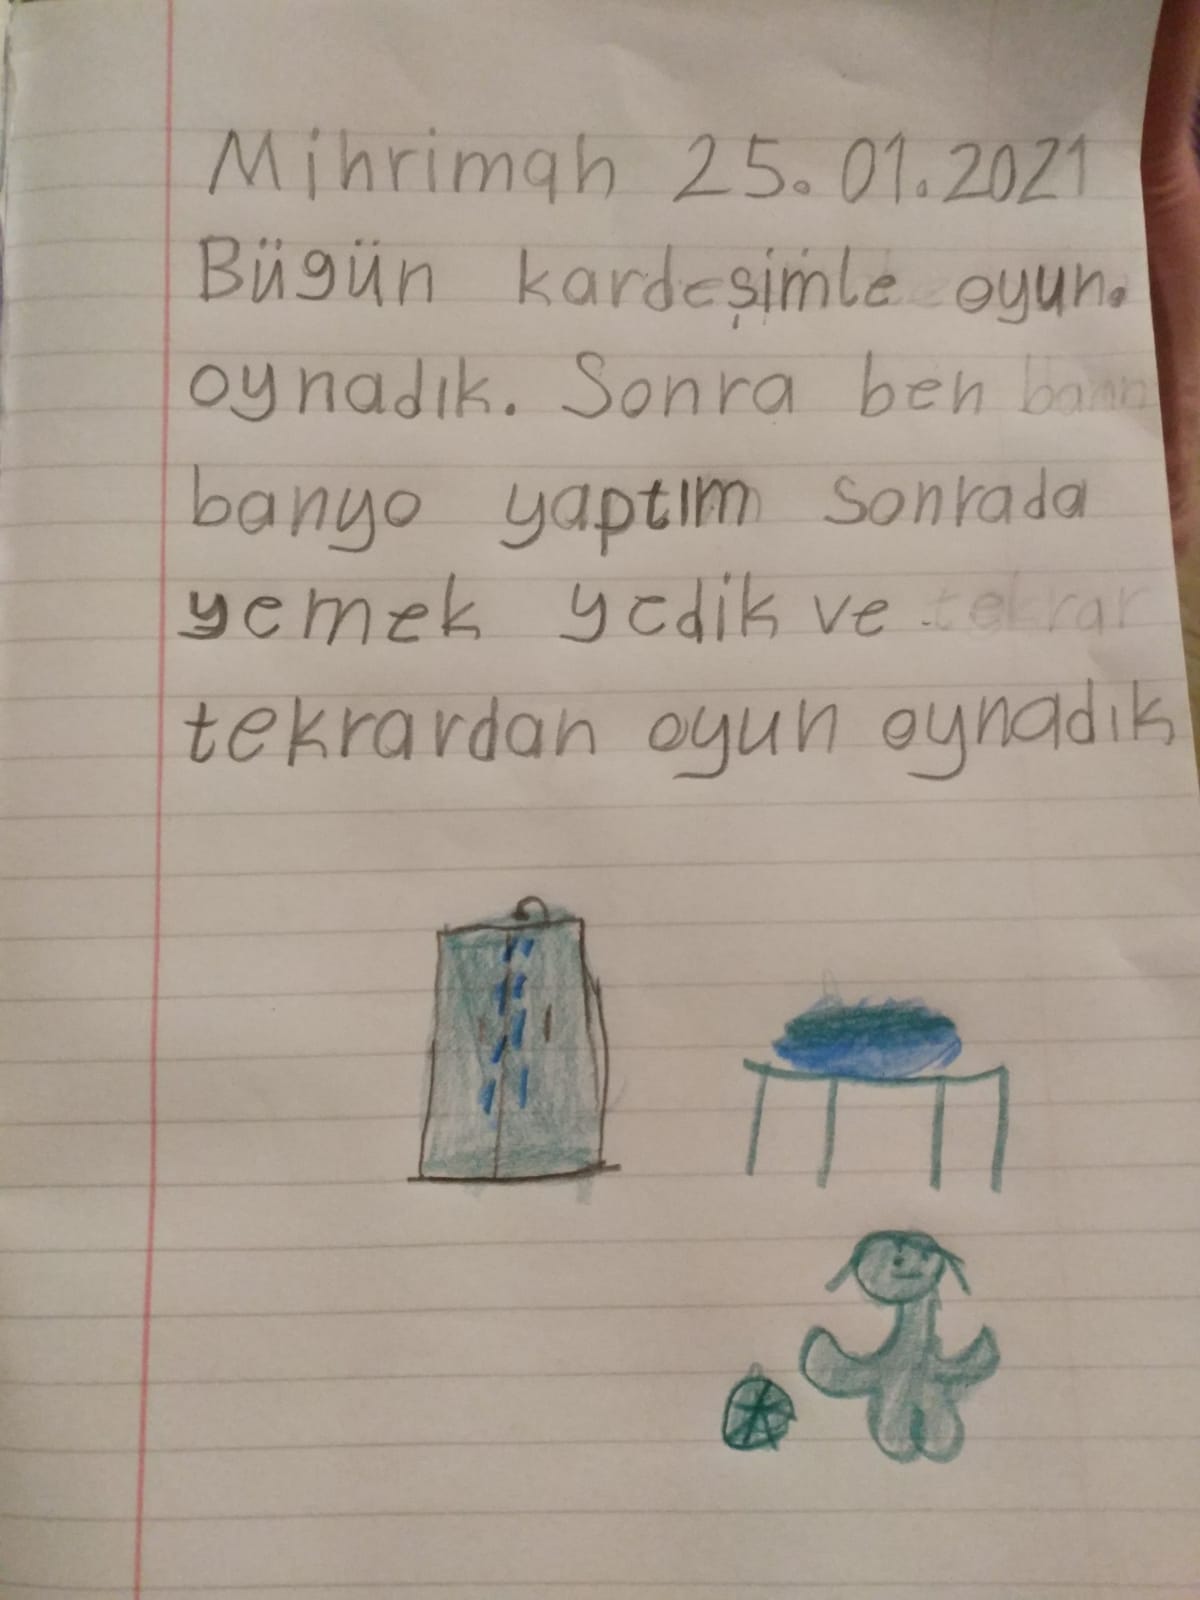 Mihrimah 25.01.2021
Bügün kardeşimle oyun.
oynadık. Sonra ben
banyo yaptım sonrada
yemek yedik ve tekrar
tekrardan oyun oynadık